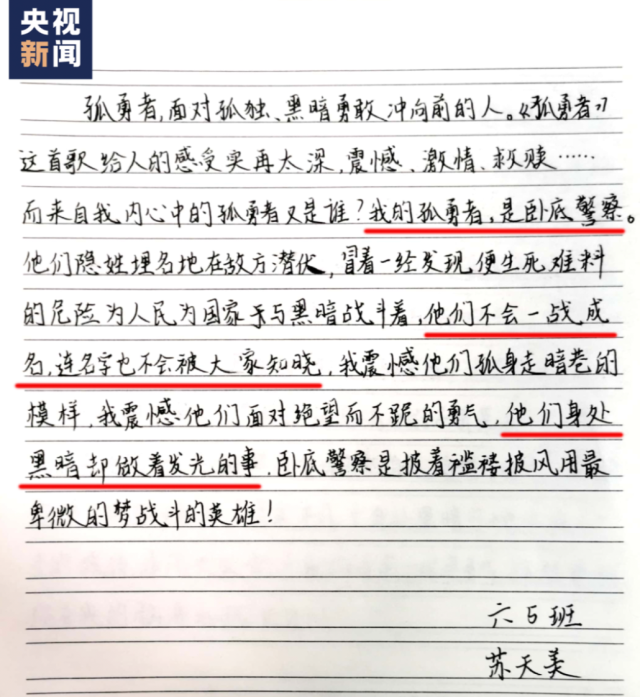 央视
新闻
孤勇者,面对孤独、黑暗勇敢冲向前的人。《孤勇者》
这首歌给人的感受实再太深,震憾、激情、救赎……
而来自我内心中的孤勇者又是谁?我的孤勇者,是卧底警察。
他们隐姓埋名地在敌方潜伏,冒着一经发现便生死难料
的危险为人民为国家于与黑暗战斗着,他们不会一战成
名,连名字也不会被大家知晓,我震憾他们孤身走暗巷的
模样,我震憾他们面对绝望而不跪的勇气,他们身处
黑暗却做着发光的事,卧底警察是披着褴褛披风用最
卑微的梦战斗的英雄!
六5班
苏天美